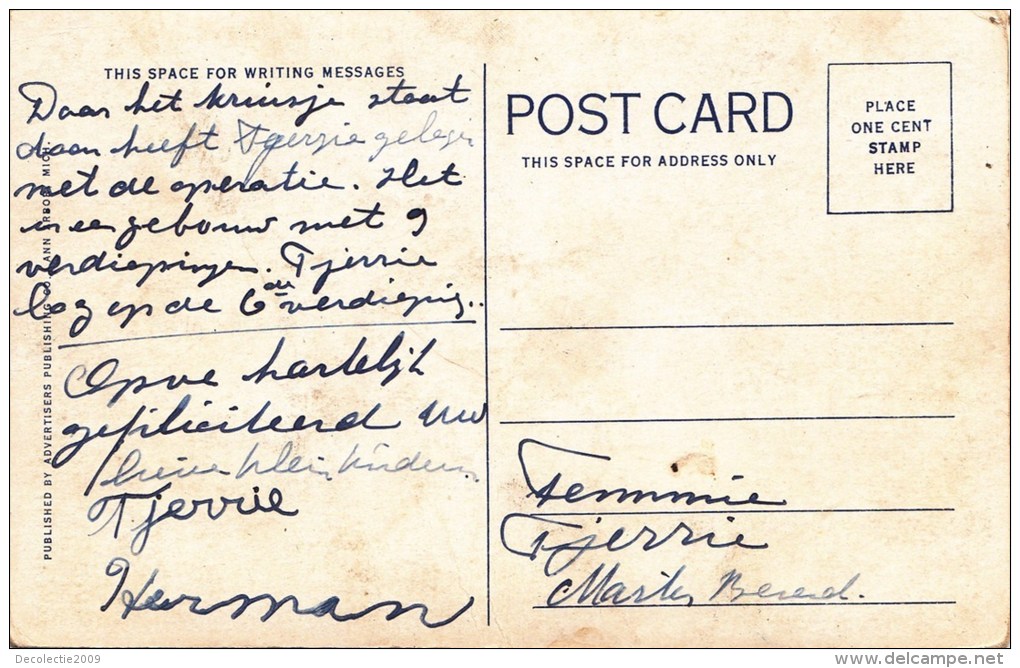 THIS SPACE FOR WRITING MESSAGES
Daar het kruisje staat
daar heeft Tjerrie gelegen
met de operatie. Het
is een gebouw met 9
verdiepingen. Tjerrie
lag op de 6de verdieping..
Opoe hartelijk
gefiliciteerd uw
lieve kleinkinderen
Tjerrie
Herman
PUBLISHED BY ADVERTISERS PUBLISHING CO., ANN ARBOR, MICH.
POST CARD
THIS SPACE FOR ADDRESS ONLY
PLACE
ONE CENT
STAMP
HERE
Femmie
Tjerrie
Berend.
Decolectie2009
www.delcampe.net